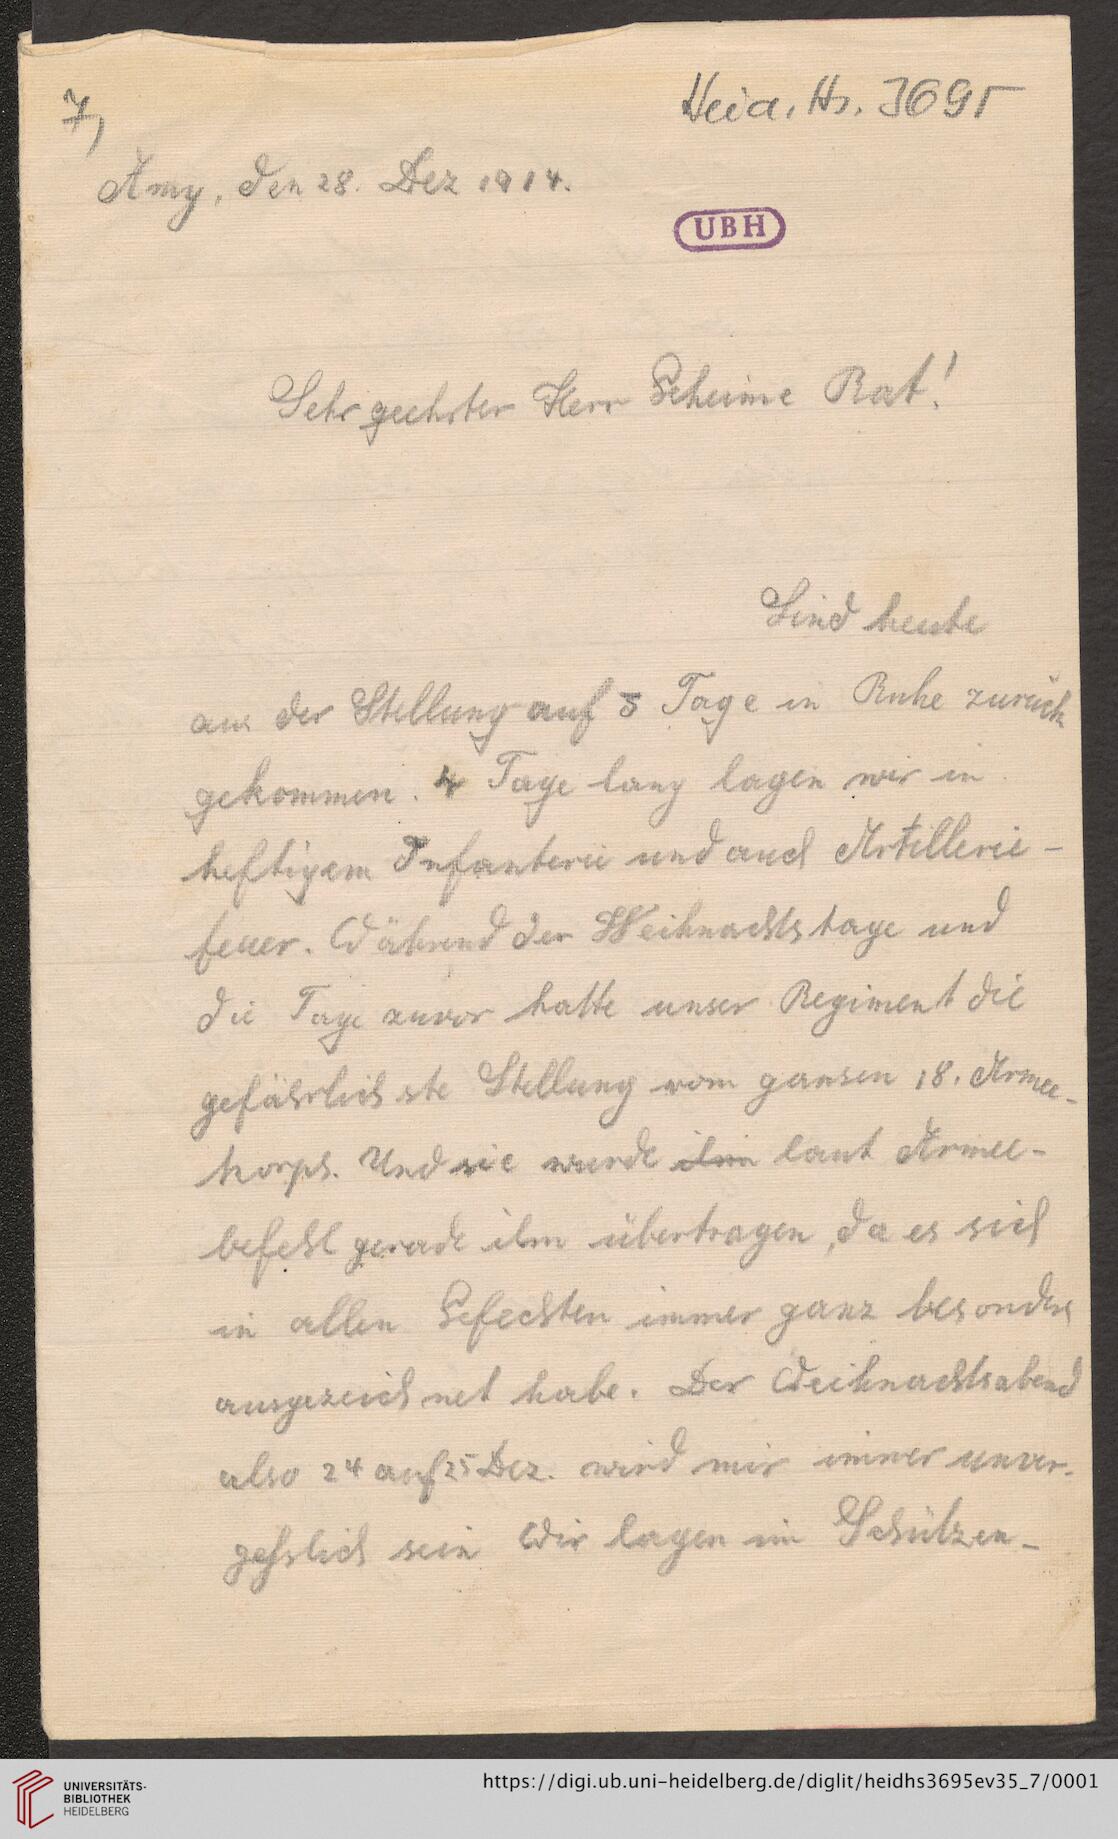 7,
Heid. Hs. 3695
Amy, den 28. Dez 1914.
UBH
Sehr geehrter Herr Geheime Rat!
Sind heute
aus der Stellung auf 3 Tage in Ruhe zurück
gekommen. 4 Tage lang lagen wir in
heftigem Infanterie und auch Artillerie-
feuer. Während der Weihnachtstage und
die Tage zuvor hatte unser Regiment die
gefährlichste Stellung vom ganzen 18. Armee-
korps. Und sie wurde ihm laut Armee-
befehl gerade ihm übertragen, da es sich
in allen Gefechten immer ganz besonders
ausgezeichnet habe. Der Weihnachtsabend
also 24 auf 25 Dez. wird mir immer unver-
gesslich sein Wir lagen im Schützen-
UNIVERSITÄTS-
BIBLIOTHEK
HEIDELBERG
https://digi.ub.uni-heidelberg.de/diglit/heidhs3695ev35_7/0001